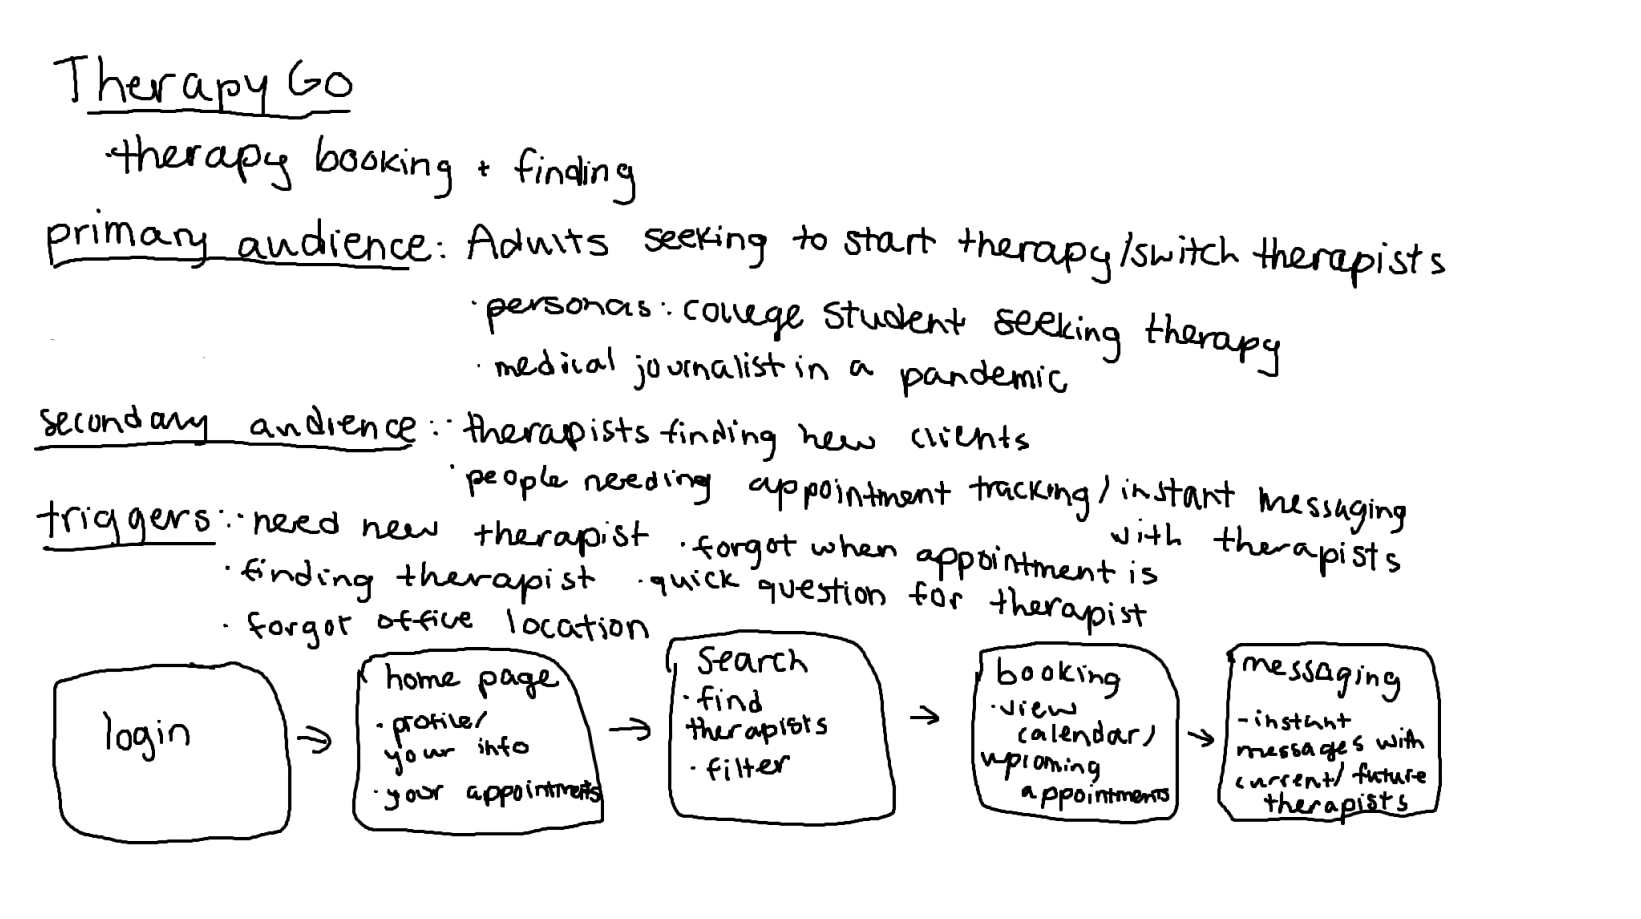 Therapy Go
·therapy booking + finding
primary audience: Adults seeking to start therapy/switch therapists
·personas: college student seeking therapy
·medical journalist in a pandemic
secondary audience: ·therapists finding new clients
·people needing appointment tracking/instant messaging
with therapists
triggers: ·need new therapist ·forgot when appointment is
·finding therapist ·quick question for therapist
·forgot office location
login →
home page
·profile/
your info
·your appointments
→
search
·find
therapists
·filter
→
booking
·view
calendar/
upcoming
appointments
→
messaging
-instant
messages with
current/future
therapists